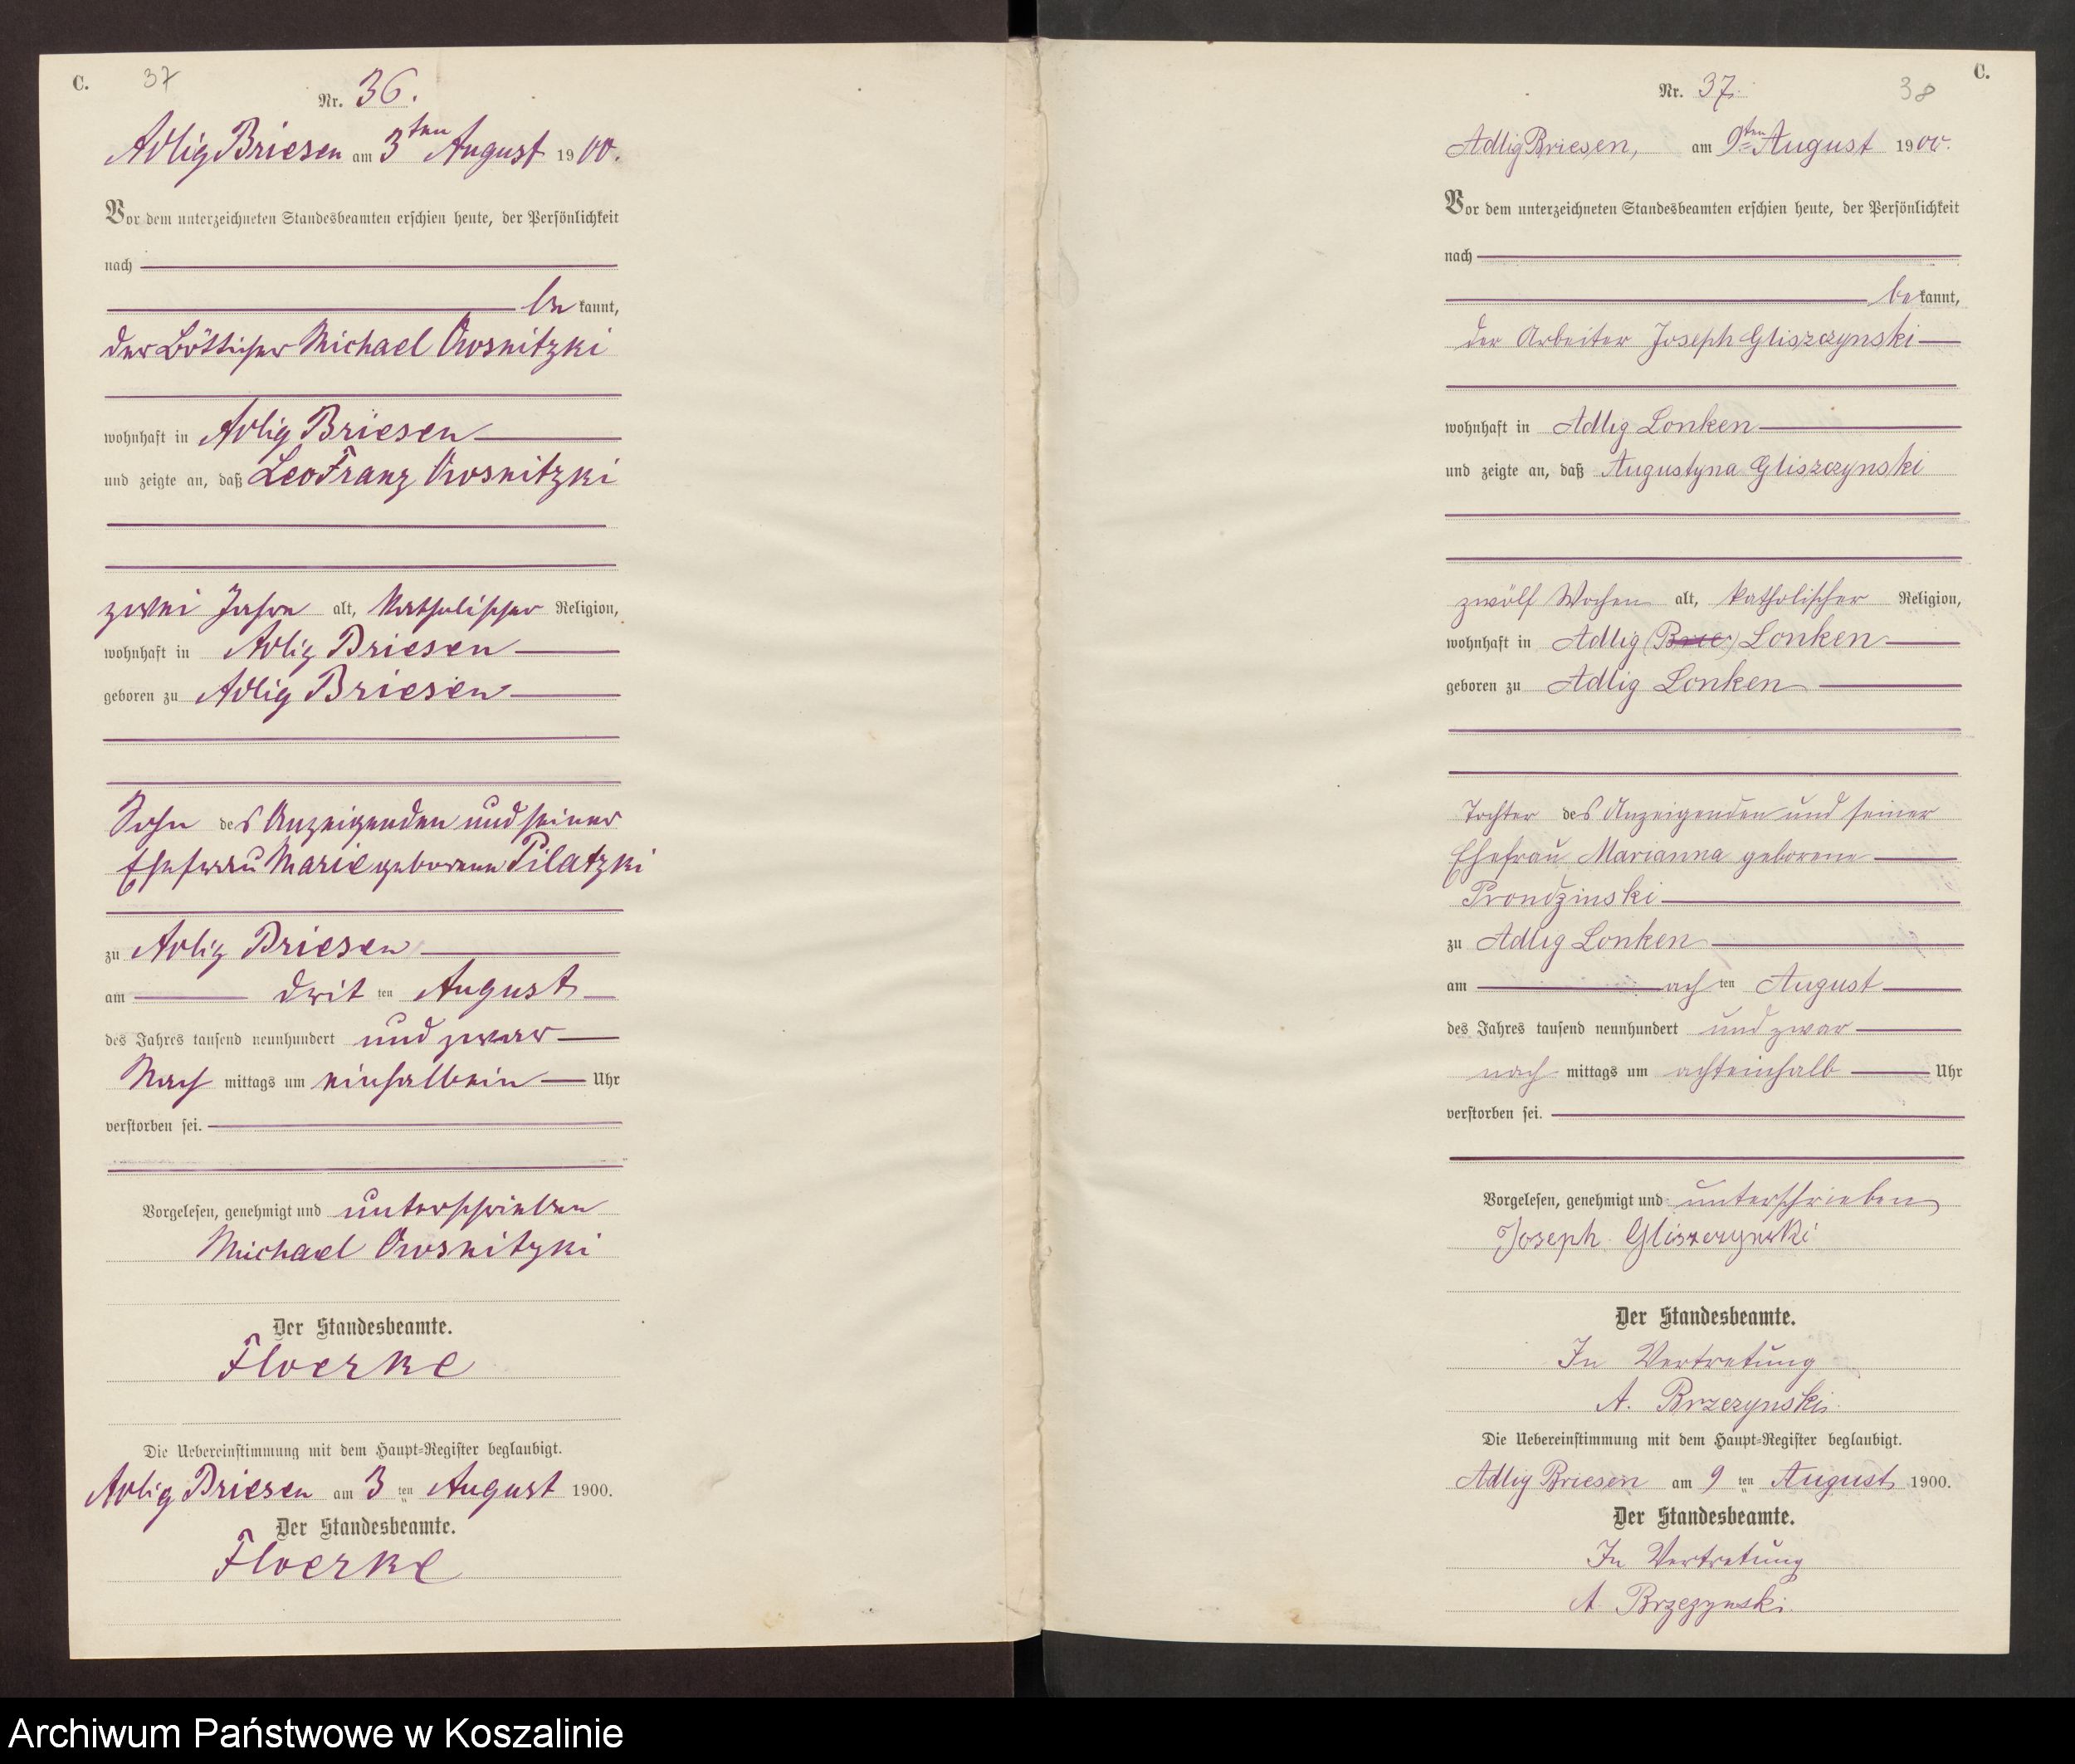 C. 37
Nr. 36.
Adlig Briesen am 3ten August 1900.
Vor dem unterzeichneten Standesbeamten erschien heute, der Persönlichkeit
nach
be kannt,
der Böttcher Michael Owsnitzki
wohnhaft in Adlig Briesen
und zeigte an, daß Leo Franz Owsnitzki
zwei Jahre alt, katholischer Religion,
wohnhaft in Adlig Briesen
geboren zu Adlig Briesen
Sohn des Anzeigenden und seiner
Ehefrau Marie geborene Pilatzki
zu Adlig Briesen
am drit ten August
des Jahres tausend neunhundert und zwar
Nach mittags um einhalbein Uhr
verstorben sei.
Vorgelesen, genehmigt und unterschrieben
Michael Owsnitzki
Der Standesbeamte.
Floerke
Die Uebereinstimmung mit dem Haupt-Register beglaubigt.
Adlig Briesen am 3 ten August 1900.
Der Standesbeamte.
Floerke
C.
Nr. 37. 38
Adlig Briesen, am 9ten August 1900.
Vor dem unterzeichneten Standesbeamten erschien heute, der Persönlichkeit
nach
be kannt,
der Arbeiter Joseph Gliszczynski
wohnhaft in Adlig Lonken
und zeigte an, daß Augustyna Gliszczynski
zwölf Wochen alt, katholischer Religion,
wohnhaft in Adlig (Brie) Lonken
geboren zu Adlig Lonken
Tochter des Anzeigenden und seiner
Ehefrau Marianna geborene
Prondzinski
zu Adlig Lonken
am ach ten August
des Jahres tausend neunhundert und zwar
nach mittags um achteinhalb Uhr
verstorben sei.
Vorgelesen, genehmigt und unterschrieben
Joseph Gliszczynski
Der Standesbeamte.
In Vertretung
A. Brzezynski.
Die Uebereinstimmung mit dem Haupt-Register beglaubigt.
Adlig Briesen am 9 ten August 1900.
Der Standesbeamte.
In Vertretung
A. Brzezynski.
Archiwum Państwowe w Koszalinie